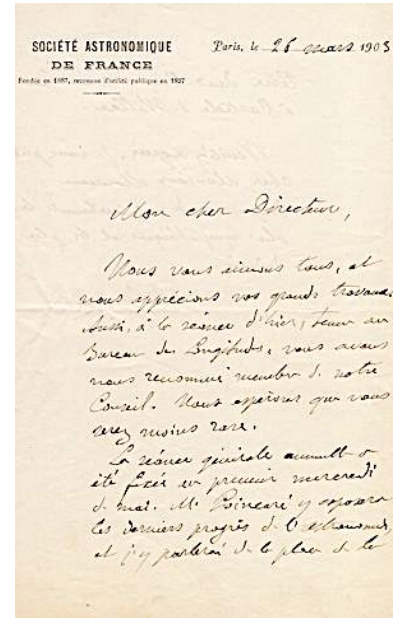 SOCIÉTÉ ASTRONOMIQUE
DE FRANCE
Fondée en 1887, reconnue d'utilité publique en 1897
Paris, le 26 mars 1903
Mon cher Directeur,
Nous vous aimons tous, et
nous apprécions vos grands travaux.
Aussi, à la séance d'hier, tenue au
Bureau des Longitudes, vous avons
nous renommé membre de notre
Conseil. Nous espérons que vous
serez moins rare.
La séance générale annuelle a
été fixée au premier mercredi
de mai. M. Poincaré y exposera
les derniers progrès de l'astronomie,
et j'y parlerai de la place de la